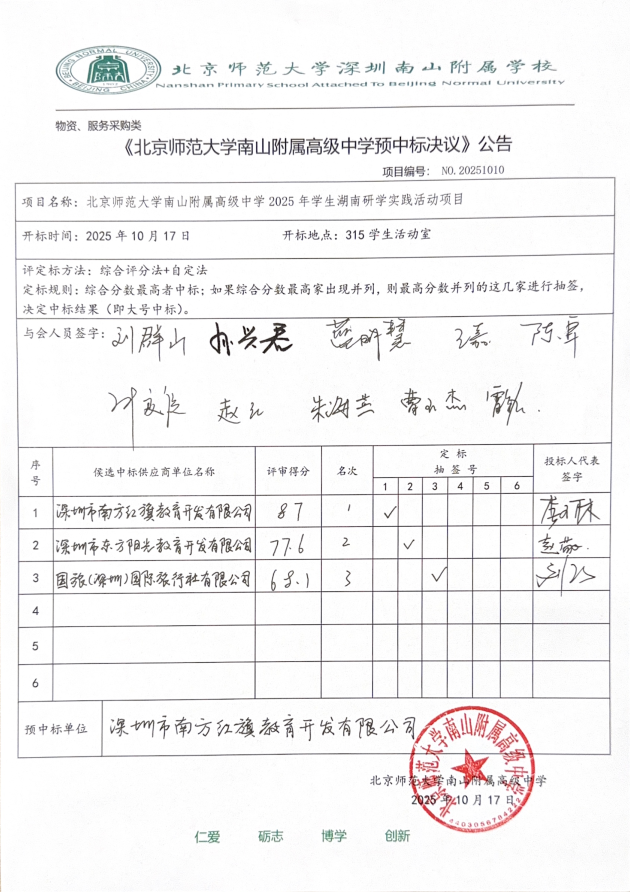 北京师范大学深圳南山附属学校
Nanshan Primary School Attached To Beijing Normal University
物资、服务采购类
《北京师范大学南山附属高级中学预中标决议》公告
项目编号： NO.20251010
项目名称：北京师范大学南山附属高级中学 2025 年学生湖南研学实践活动项目
开标时间：2025 年 10 月 17 日 开标地点：315 学生活动室
评定标方法：综合评分法+自定法
定标规则：综合分数最高者中标；如果综合分数最高家出现并列，则最高分数并列的这几家进行抽签，
决定中标结果（即大号中标）。
与会人员签字：刘群山 孙兴君 蓝昕慧 王嘉
赵 朱海燕
序号 候选中标供应商单位名称 评审得分 名次 定标抽签号 投标人代表签字
1 2 3 4 5 6
1 深圳市南方红旗教育开发有限公司 87 1 ✓
2 深圳市东方阳光教育开发有限公司 77.6 2 ✓
3 国旅(深圳)国际旅行社有限公司 68.1 3 ✓
4
5
6
预中标单位 深圳市南方红旗教育开发有限公司
北京师范大学南山附属高级中学
2025 年 10 月 17 日
仁爱 砺志 博学 创新